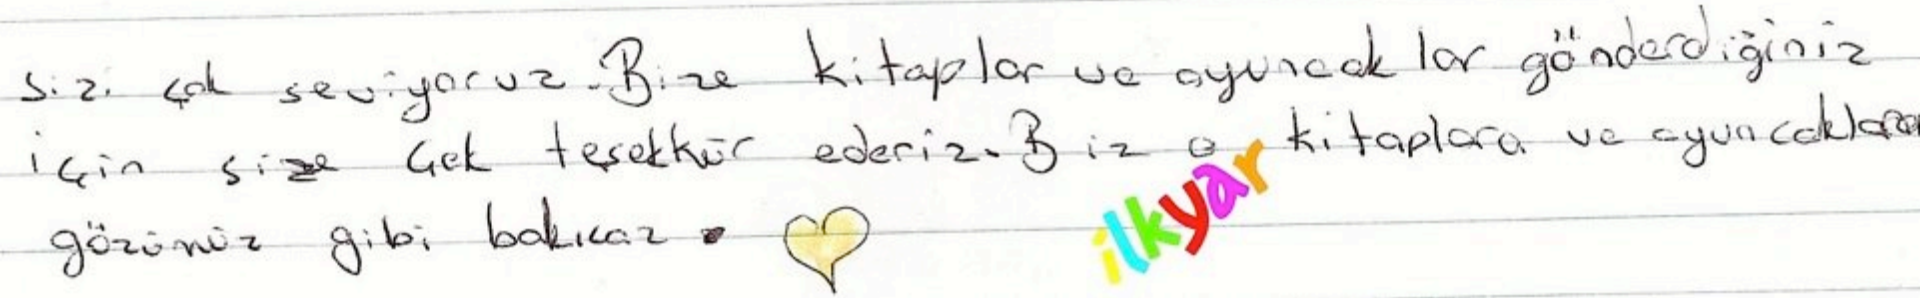 Sizi çok seviyoruz. Bize kitaplar ve oyuncak lar gönderdiğiniz
için size çok teşekkür ederiz. Biz o kitaplara ve oyuncaklara
gözünüz gibi bakıcaz.
ilkyar